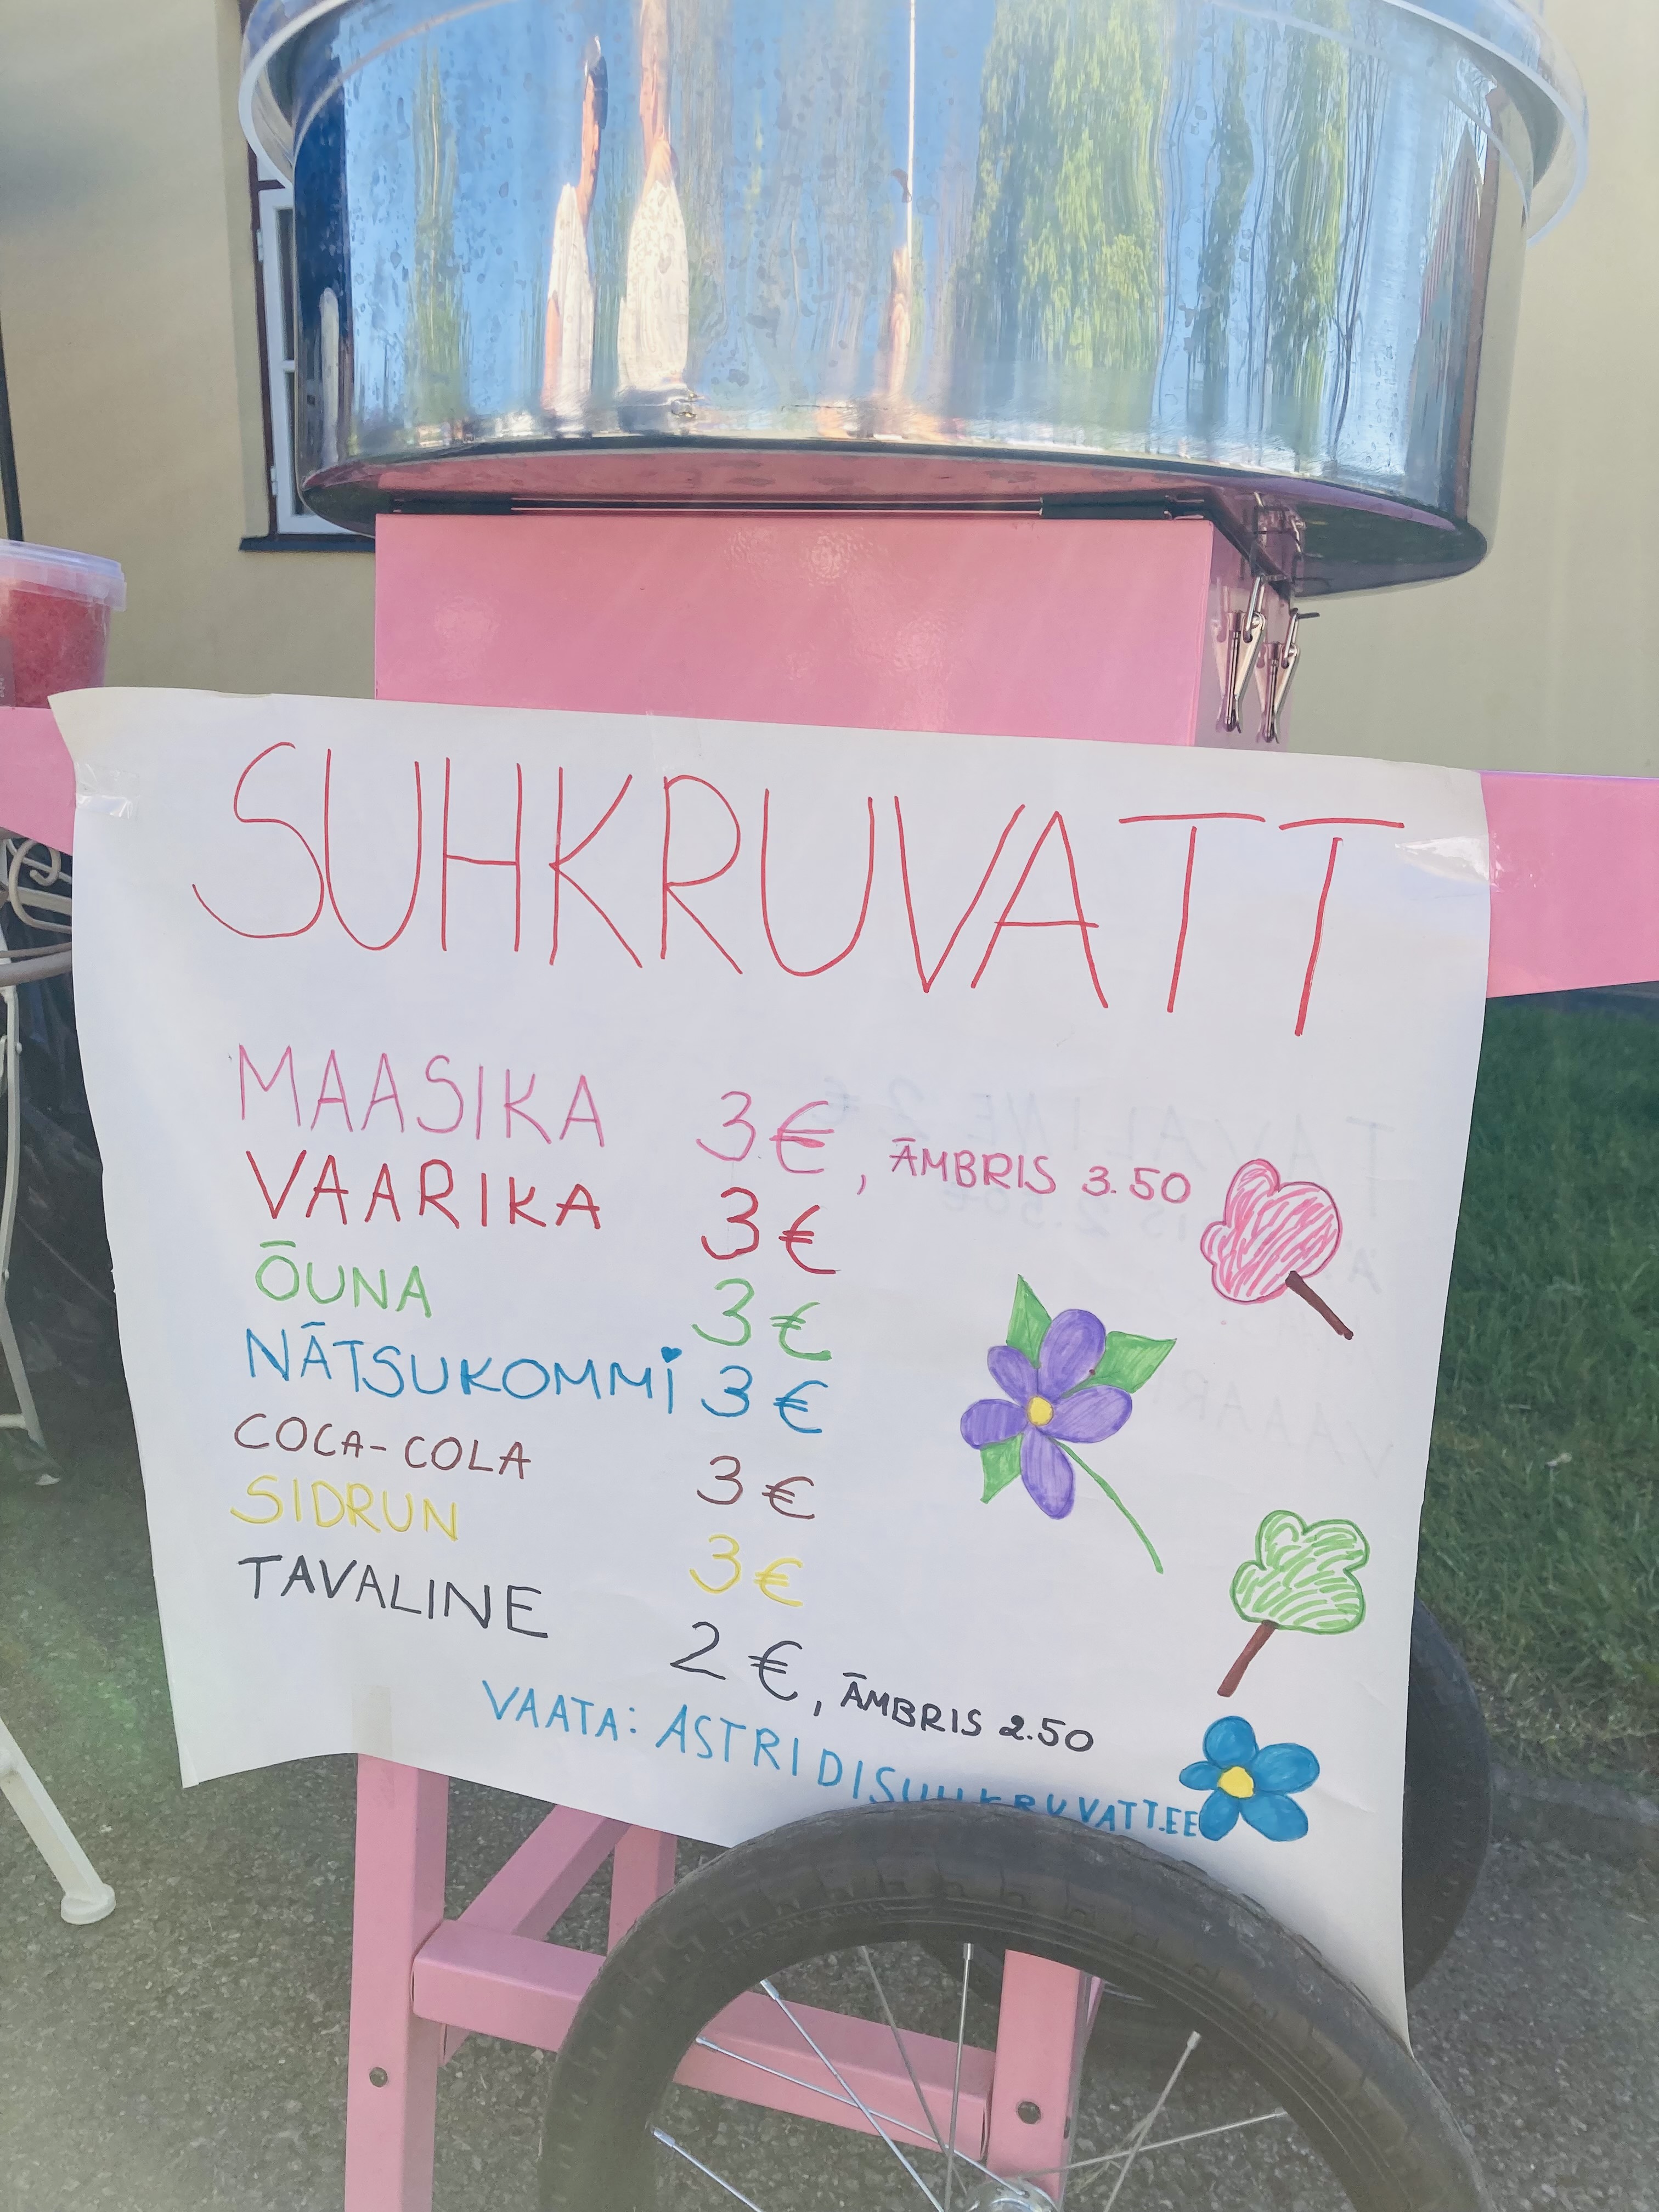 SUHKRUVATT
MAASIKA 3€, ÄMBRIS 3.50
VAARIKA 3€
ÕUNA 3€
NÄTSUKOMMI 3€
COCA-COLA 3€
SIDRUN 3€
TAVALINE 2€, ÄMBRIS 2.50
VAATA: ASTRIDISUHKRUVATT.EE